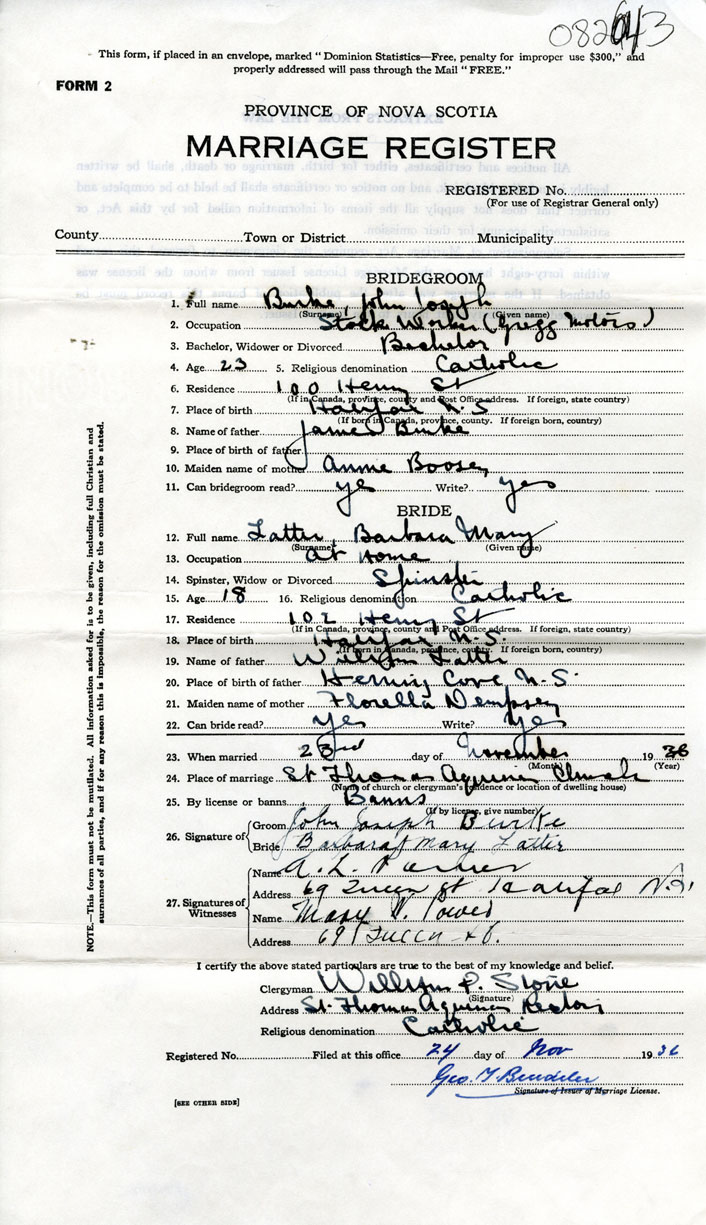 This form, if placed in an envelope, marked "Dominion Statistics—Free, penalty for improper use $300," and
properly addressed will pass through the Mail "FREE."
FORM 2
PROVINCE OF NOVA SCOTIA
MARRIAGE REGISTER
REGISTERED No.
(For use of Registrar General only)
County Town or District Municipality
BRIDEGROOM
1. Full name Burke, John Joseph
(Surname) (Given name)
2. Occupation Stock Worker (Gregg Motors)
3. Bachelor, Widower or Divorced Bachelor
4. Age 23 5. Religious denomination Catholic
6. Residence 100 Henry St
(If in Canada, province, county and Post Office address. If foreign, state country)
7. Place of birth Halifax N.S
(If born in Canada, province, county. If foreign born, country)
8. Name of father James Burke
9. Place of birth of father
10. Maiden name of mother Annie
11. Can bridegroom read? yes Write? yes
BRIDE
12. Full name Latter, Barbara Mary
(Surname) (Given name)
13. Occupation at Home
14. Spinster, Widow or Divorced Spinster
15. Age 18 16. Religious denomination Catholic
17. Residence 102 Henry St
(If in Canada, province, county and Post Office address. If foreign, state country)
18. Place of birth Halifax N.S.
(If born in Canada, province, county. If foreign born, country)
19. Name of father William Latter
20. Place of birth of father Herring Cove N.S.
21. Maiden name of mother Florella Dempsey
22. Can bride read? yes Write? yes
23. When married 23rd day of November 1936
(Month) (Year)
24. Place of marriage St Thomas Aquinas Church
(Name of church or clergyman's residence or location of dwelling house)
25. By license or banns Banns
(If by license, give number)
26. Signature of
Groom John Joseph Burke
Bride Barbara Mary Latter
27. Signatures of Witnesses
Name A. L.
Address 69 Queen St Halifax N.S.
Name Mary V. Power
Address 69 Queen St.
I certify the above stated particulars are true to the best of my knowledge and belief.
Clergyman William P.
(Signature)
Address St. Thomas Aquinas Rectory
Religious denomination Catholic
Registered No. Filed at this office 24 day of Nov 1936
Geo. T.
Signature of Issuer of Marriage License.
[SEE OTHER SIDE]
NOTE.—This form must not be mutilated. All information asked for is to be given, including full Christian and
surnames of all parties, and if for any reason this is impossible, the reason for the omission must be stated.